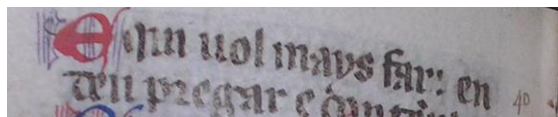 E qui uol mays far: en
ten pregar e
40